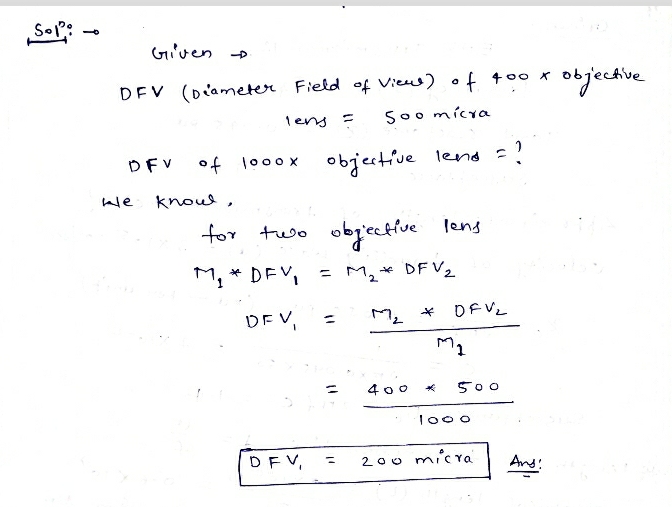 Solⁿ: →
Given →
DFV (Diameter Field of View) of 400 x objective
lens = 500 micra
DFV of 1000x objective lens = ?
We know,
for two objective lens
M₁ * DFV₁ = M₂ * DFV₂
DFV₁ = M₂ * DFV₂
M₁
= 400 * 500
1000
DFV₁ = 200 micra Ans: